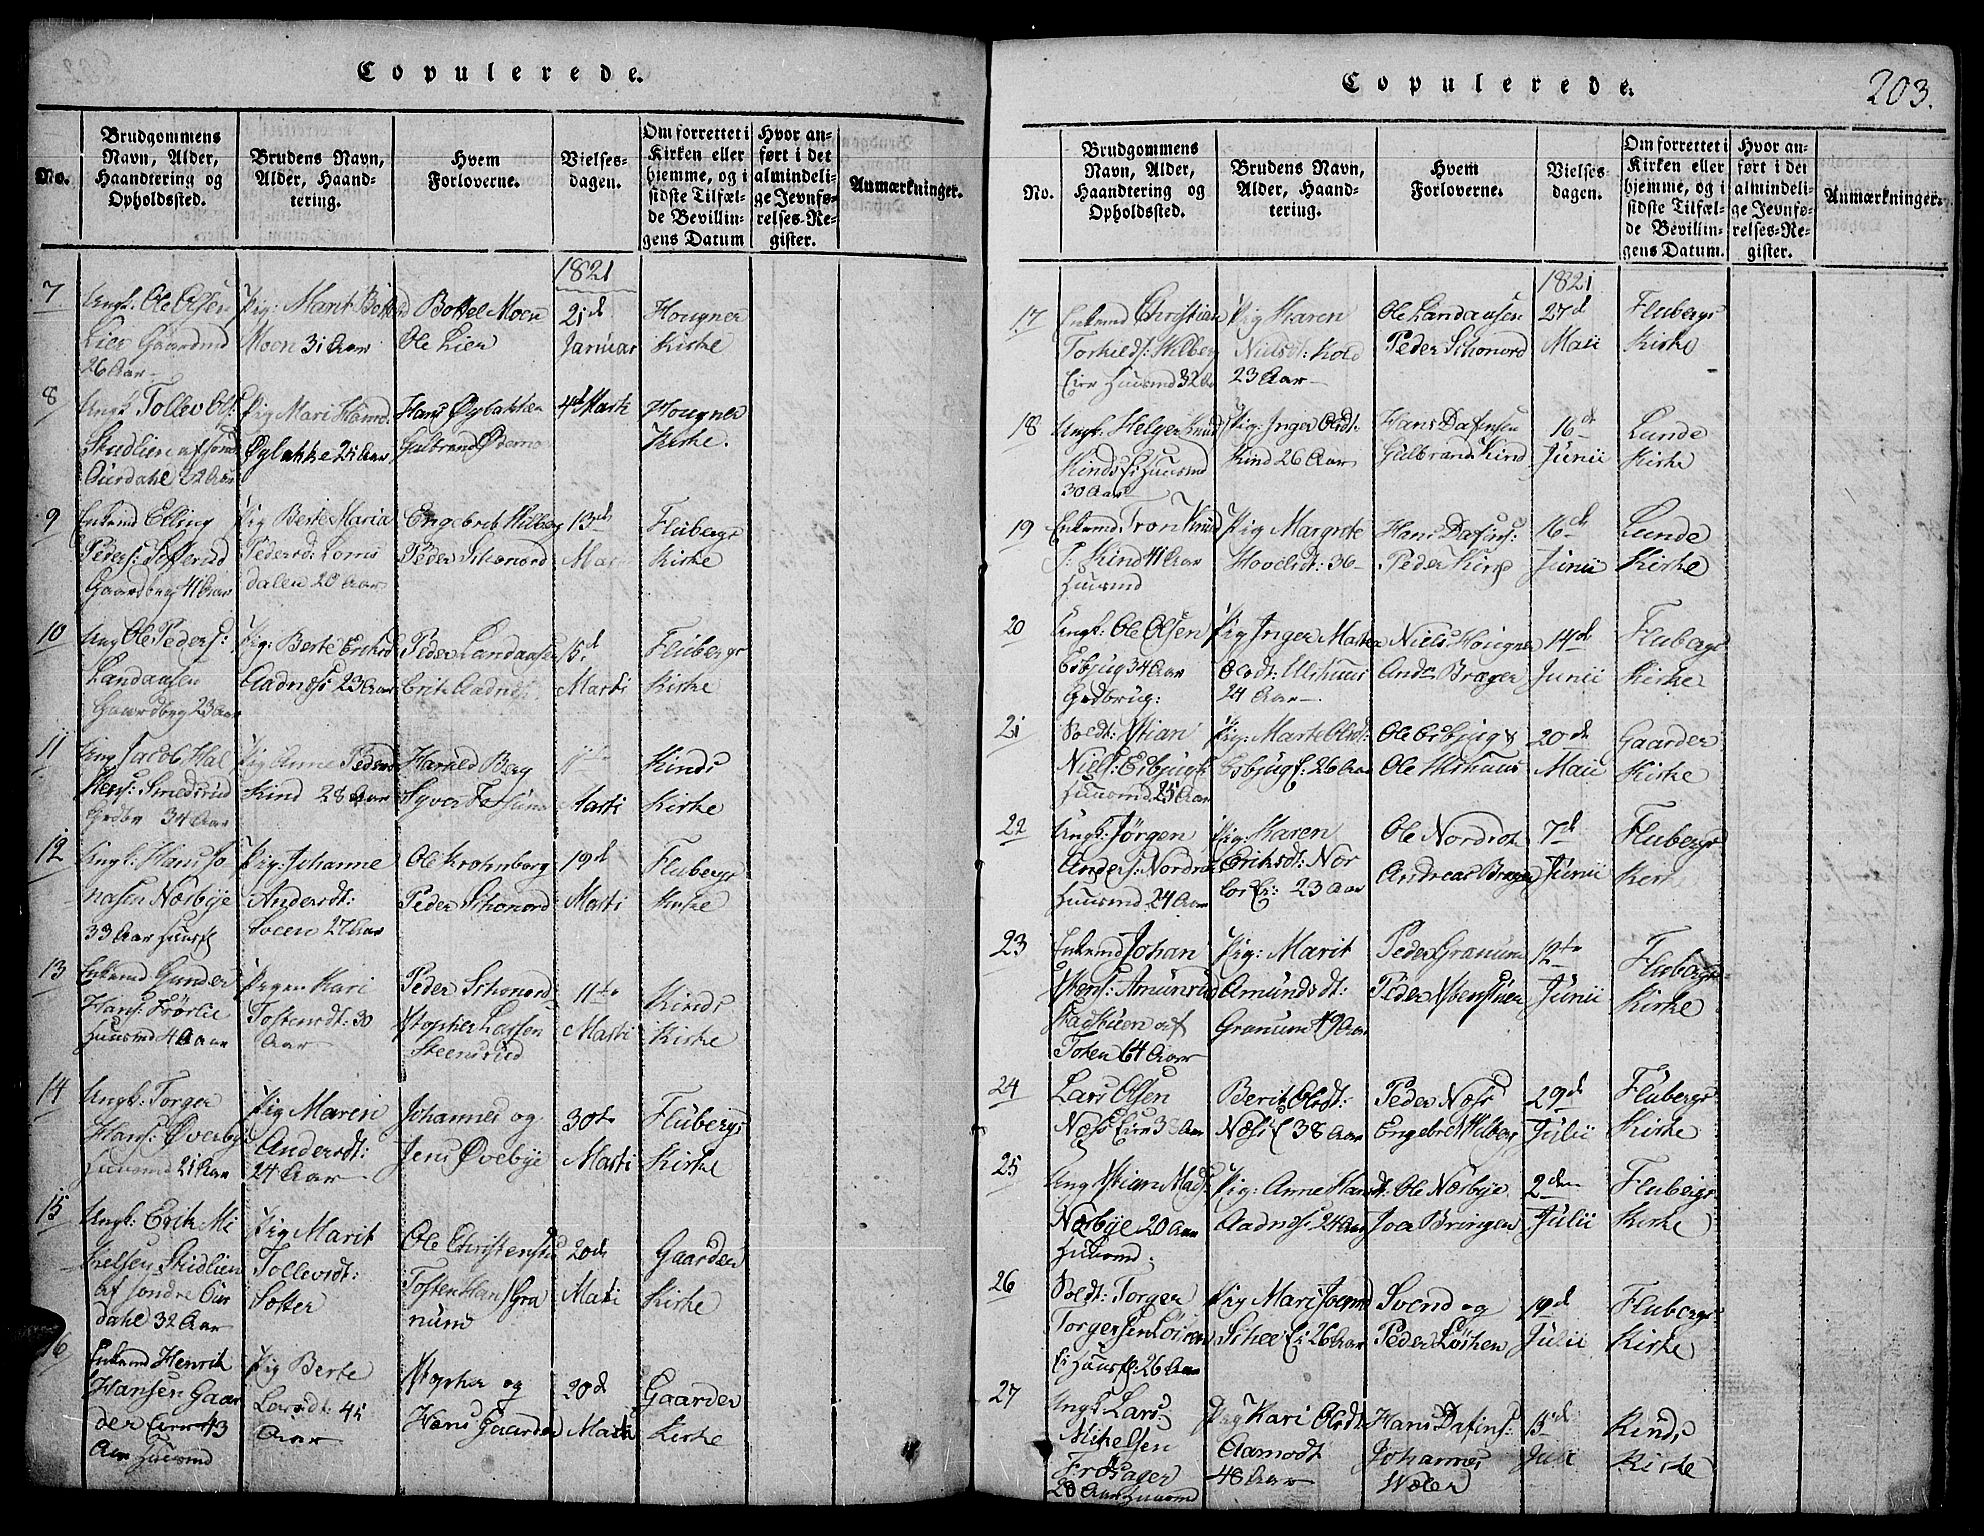 Copulerede.
No.
Brudgommens Navn, Alder, Haandtering og Opholdssted.
Brudens Navn, Alder, Haandtering.
Hvem Forloverne.
Vielsesdagen.
Om forrettet i Kirken eller hjemme, og i sidste Tilfælde Bevillingens Datum
Hvor anført i det almindelige Jevnførelses-Register.
Anmærkninger.
1821
7
Ungk: Ole Olsen
Lier Gaardmd
26 Aar
Pig: Marit
Moen 31 Aar
Bottel Moen
Ole Lier
21d
Januar
Hougner
Kirke
8
Ungk Tollev Ols:
Skudlien af
Ourdahl 22 Aar
Pig Mari
Øylakke 21 Aar
Hans Øylakken
Gulbrand
4d Marti
Hougner
Kirke.
9
Enkemd Elling
Peders:
Gaardbrg 41 Aar
Pig Berte Maria
Pedersd: Loms
dalen 20 Aar
Engebret Hilberg
Peder Schonord
13d
Mar
Flubergs
Kirke
10
Ung Ole Peders:
Landaasen
Gaardbrg 23 Aar
Pig: Berte
23 Aar
Peder Landaasen
15d
Marti
Flubergs
Kirke
11
Ung Jacob Hal
stens: Smedsrud
34 Aar
Pig Anne
Kind 28 Aar
Harald Berg
Syver
11te
Marti
Kinds
Kirke
12
Ungk: Hans Jo
nasen Næsbye
33 Aar Huusf
Pig: Johanne
Andersdt:
Soeen 27 Aar
Ole Krohnborg
Peder Schonord
19d
Marti
Flubergs
Kirke
13
Enkemd Gunder
Hans: Frørlie
Huusmd 40 Aar
Pigen Kari
Tostensdt: 30
Aar
Peder Schonord
Stopher Larsen
Steensrud
11te
Marti
Kinds
Kirke
14
Ungk: Torger
Hans: Øverby
Huusmd 21 Aar
Pig Maren
Andersdt:
24 Aar
Johannes og
Jens Øvebye
30te
Marti
Flubergs
Kirke
15
Ungk: Erik Mi
kelsen Skudlien
af søndre Our
dahl 32 Aar
Pig Marit
Tollevsdt:
Sætter
Ole
Tosten Hans Gra
num
20de
Marti
Gaarder
Kirke
16
Enkemd Henrik
Hansen Gaar
der Eier 43
Aar Huusmd
Pig Berte
Larsdt: 45
Aar
Stopher og
Hans Gaarder
20d
Marti
Gaarder
Kirke
Copulerede.
203.
No.
Brudgommens Navn, Alder, Haandtering og Opholdssted.
Brudens Navn, Alder, Haandtering.
Hvem Forloverne.
Vielsesdagen.
Om forrettet i Kirken eller hjemme, og i sidste Tilfælde Bevillingens Datum.
Hvor anført i det almindelige Jevnførelses-Register.
Anmærkninger.
1821
17
Enkemd Christian
Torkilds: Hilberg
Eier Huusmd 32 Aar
Pig Maren
Nielsdt:
23 Aar
Ole Landaasen
Peder Schonord
27d
Maii
Flubergs
Kirke
18
Ungk: Helger Knud
Kinds E: Huusmd
30 Aar
Pig: Inger Olsdt:
Kind 26 Aar
Hans Dafinsen
Gulbrand Kind
16de
Junii
Lunde
Kirke
19
Enkemd Tron Knud
s: Kind 41 Aar
Huusmd
Pig Margrete
36
Hans Dafins:
Peder Kind
16de
Junii
Lunde
Kirke
20
Ungk: Ole Olsen
Esbjug 34 Aar
Grdbrug:
Pig Inger Marte
Olsdt: Ulshuus
24 Aar
Niels Hougner
Brager
14d
Junii
Flubergs
Kirke
21
Soldt: Stian
Niels: Esbjug E
Huusmd 25 Aar
Pig: Marte Olsdt:
Esbjug E: 26 Aar
Ole Esbjug &
Ole Ulshuus
20de
Maii
Gaarder
Kirke
22
Ungk: Jørgen
Anders: Nordro
Huusmd 24 Aar
Pig: Karen
Eriksdt: Nor
E: 23 Aar
Ole Nordroe
Andreas Brager
7d
Junii
Flubergs
Kirk
23
Enkemd Johan
Stens: Amunrud
af
Toten 64 Aar
Pig: Marit
Amundsdt:
Granum 49 Aar
Peder Granum
Peder
12te
Junii
Flubergs
Kirke
24
Lars Olsen
Næss Eier 38 Aar
Berit Olsdt:
Næss E 38 Aar
Peder Næss
Engebret Hilberg
29d
Julii
Flubergs
Kirke
25
Ung Stian Mads:
Næsbye 20 Aar
Huusmd:
Pig: Anne Hansdt:
Aadnæs: 24 Aar
Ole Næsbye
Joen Bringen
2den
Julii
Flubergs
Kirke
26
Soldt: Torger
Torgersen Løken
E: Huusf: 26 Aar
Pig Mari
Schee E: 26 Aar
Svend og
Peder Løken
19d
Julii
Flubergs
Kirke
27
Ungk Lars
Mikelsen
Frøsager
28 Aar Huusmd
Pig Kari Olsdt
Aamodt
48 Aar
Hans Dafins:
Johannes
Wæler
15d
Juli
Kinds
Kirke